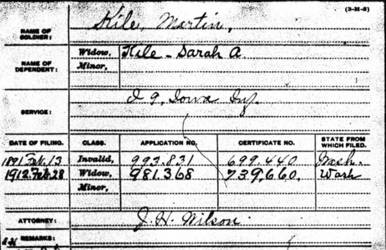 (3-H-8)
NAME OF SOLDIER: Hile, Martin,
NAME OF DEPENDENT: Widow, Hile - Sarah A
Minor,
SERVICE: I 9, Iowa Inf.
DATE OF FILING. CLASS. APPLICATION NO. CERTIFICATE NO. STATE FROM WHICH FILED.
1891 Feb. 13 Invalid, 993.831 699.440
1912 Feb 28 Widow, 981.368 739,660. Wash
Minor,
ATTORNEY: J. H. Wilson
REMARKS: